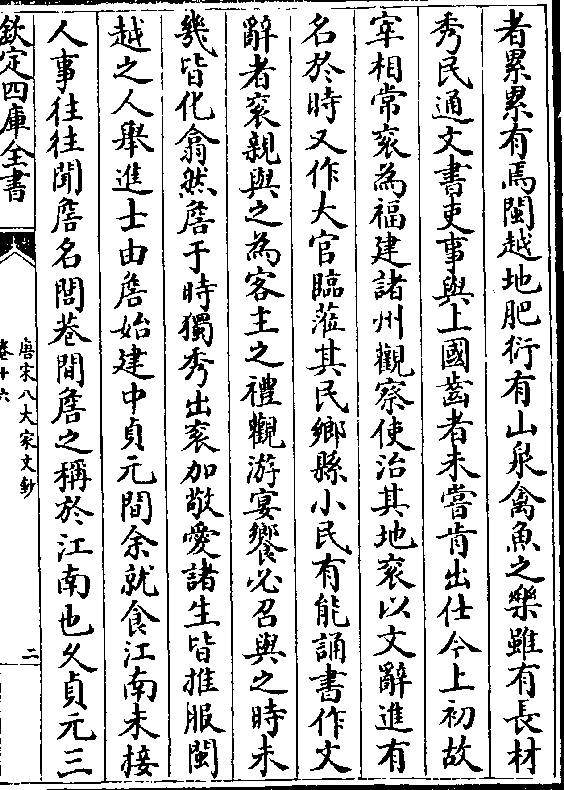 者累累有焉閩越地肥衍有山泉禽魚之樂雖有長材
秀民通文書吏事與上國齒者未嘗肯出仕今上初故
宰相常衮為福建諸州觀察使治其地衮以文辭進有
名於時又作大官臨蒞其民鄉縣小民有能誦書作文
辭者衮親與之為客主之禮觀游宴饗必召與之時未
幾皆化翕然詹于時獨秀出衮加敬愛諸生皆推服閩
越之人舉進士由詹始建中貞元間余就食江南未接
人事往往聞詹名閭巷間詹之稱於江南也久貞元三
欽定四庫全書
唐宋八大家文鈔
卷十六
二